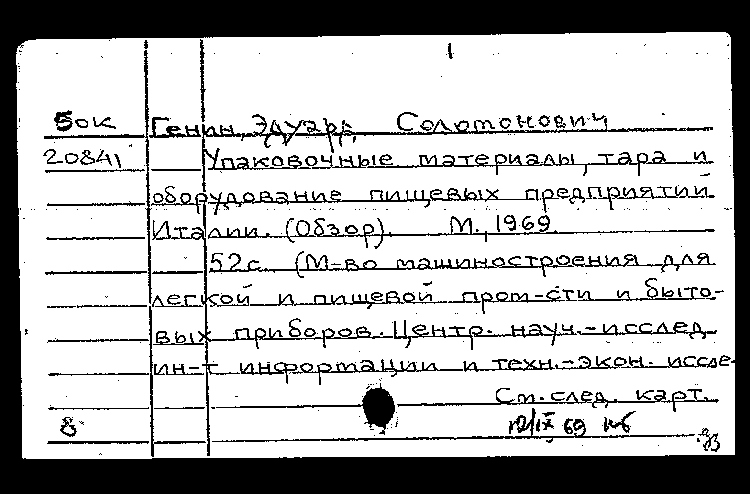 Бок Генин, Эдуард Соломонович
20841 Упаковочные материалы, тара и
оборудование пищевых предприятий
Италии. (Обзор). М., 1969
52с. (М-во машиностроения для
легкой и пищевой пром-сти и быто-
вых приборов. Центр. науч.-исслед.
ин-т информации и техн.-экон. иссле-
См. след. карт.
8 12/IX 69